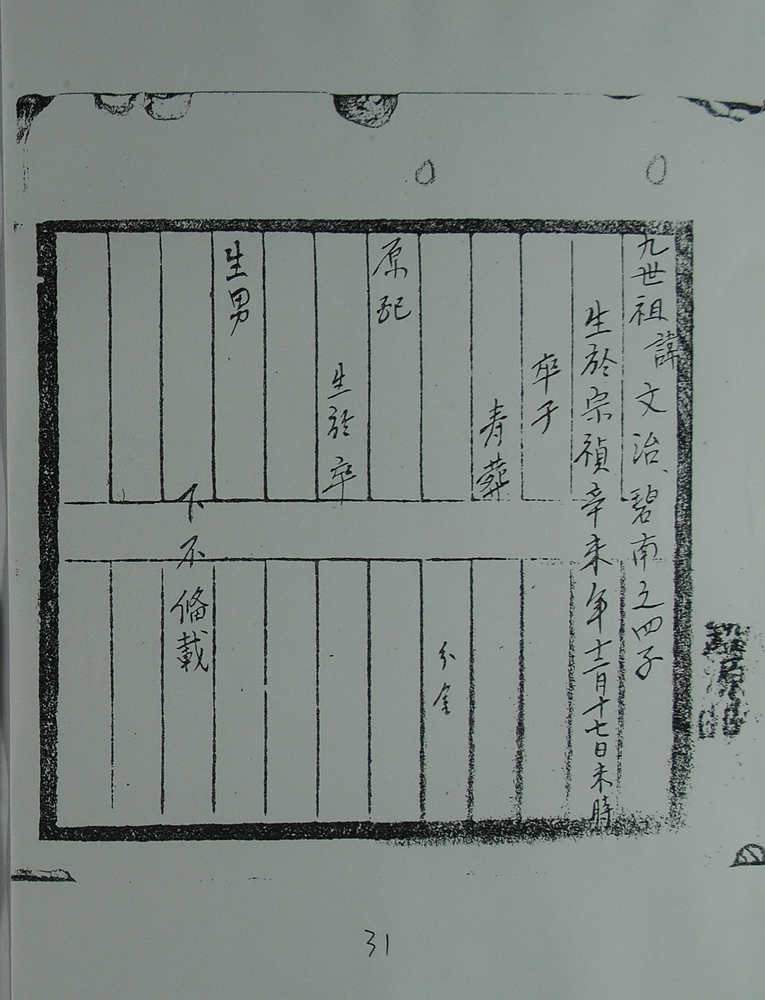 九世祖諱文治、碧南之四子
生於宗禎辛未年十二月十七日未時
卒于
寿葬
分金
原配
生於卒
生男
下不俻載
31